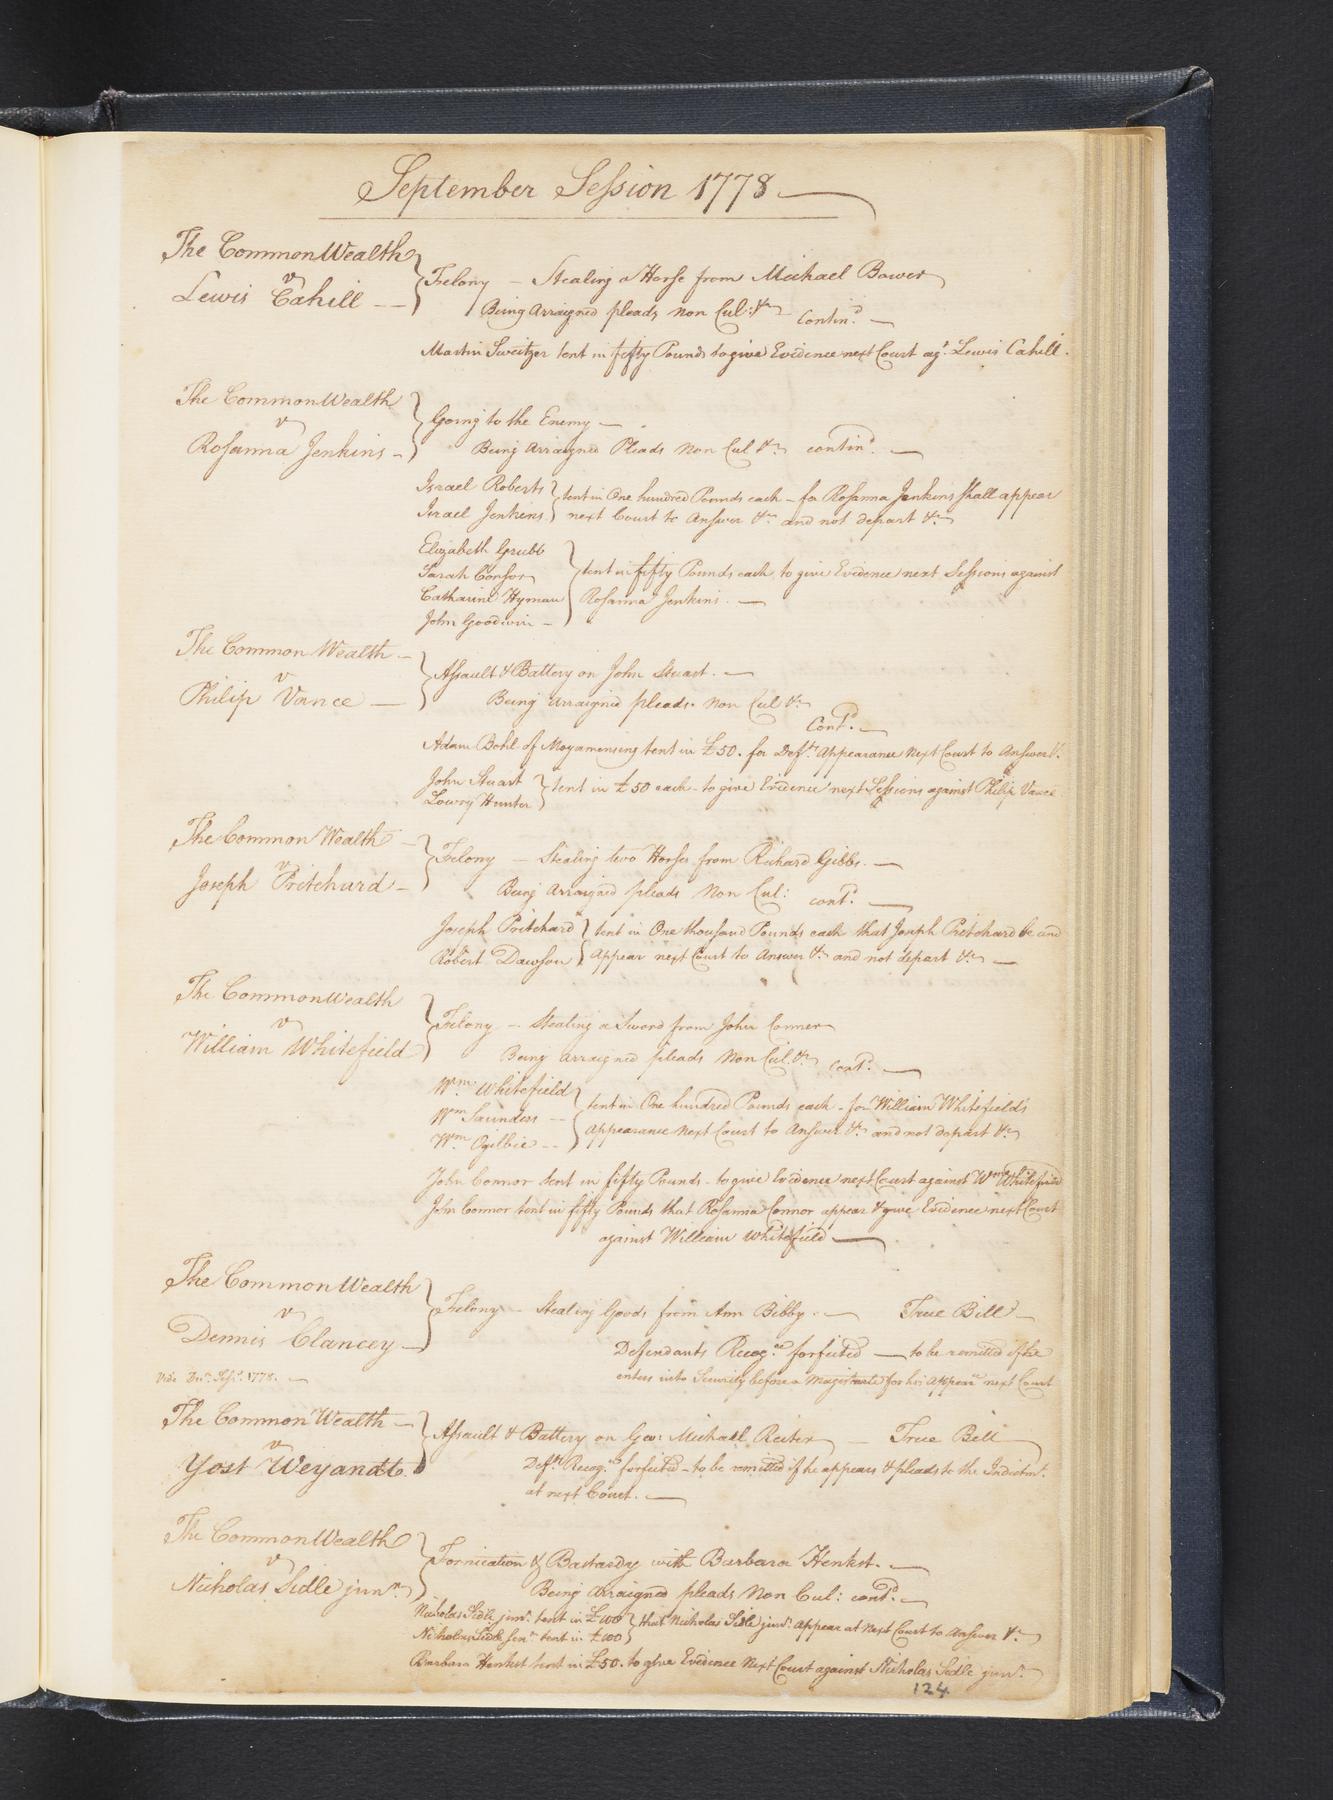 September Session 1778
The CommonWealth
v
Lewis Cahill
Felony — Stealing a Horse from Michael Bower
Being Arraigned pleads Non Cul: &c contind. —
Martin Sweitzer tent in fifty Pounds to give Evidence next Court agt. Lewis Cahill.
The CommonWealth
v
Rosanna Jenkins
Going to the Enemy —
Being Arraigned Pleads Non Cul &c contind. —
Israel Roberts
Israel Jenkins
tent in One hundred Pounds each — for Rosanna Jenkins shall appear
next Court to Answer &c and not depart &c
Elizabeth Grubb
Sarah
Catharine Hyman
John Goodwin —
tent in fifty Pounds each, to give Evidence next Sessions against
Rosanna Jenkins. —
The Common Wealth —
v
Philip Vance —
Assault & Battery on John Stuart. —
Being arraigned pleads. Non Cul &c
Contd. —
Adam Bohl of Moyamensing tent in £50. for Defts. Appearance Next Court to Answer &c.
John Stuart
Lowry Hunter
tent in £50 each - to give Evidence next Sessions against Philip Vance
The Common Wealth —
v
Joseph Pritchard —
Felony — Stealing two Horses from Richard Gibbs. —
Being Arraigned pleads Non Cul: contd. —
Joseph Pritchard
Robert Dawson
tent in One thousand Pounds each that Joseph Pritchard be and
Appear next Court to Answer &c and not depart &c —
The CommonWealth
v
William Whitefield
Felony — Stealing a Sword from John Conner
Being arraigned pleads Non Cul. &c contd. —
Wm. Whitefield
Wm Saunders —
Wm. Ogilbie —
tent in One hundred Pounds each - for William Whitefield's
Appearance Next Court to Answer &c and not depart &c
John Connor tent in fifty Pounds - to give Evidence next Court against Wm Whitefield
John Connor tent in fifty Pounds that Rosanna Connor appear & give Evidence next Court
against William Whitefield —
The CommonWealth
v
Dennis Clancey —
Vide Sepr. 1778. —
Felony — Stealing Goods from Ann Bibby. — True Bill —
Defendants Recogce forfeited — to be remitted if he
enters into Security before a Magistrate for his Appearce next Court
The Common Wealth —
v
Yost Weyandt
Assault & Battery on Geo: Michael Reiter — True Bill
Defts Recogce forfeited - to be remitted if he appears & pleads to the Indictmt.
at next Court. —
The CommonWealth
v
Nicholas Sidle junr.
Fornication & Bastardy with Barbara Henkst. —
Being Arraigned pleads Non Cul: contd. —
Nicholas Sidle junr. tent in £100
Nicholas Sidle senr tent in £100
that Nicholas Sidle junr. appear at Next Court to Answer &c.
Barbara Henkst tent in £50. to give Evidence Next Court against Nicholas Sidle junr.
124